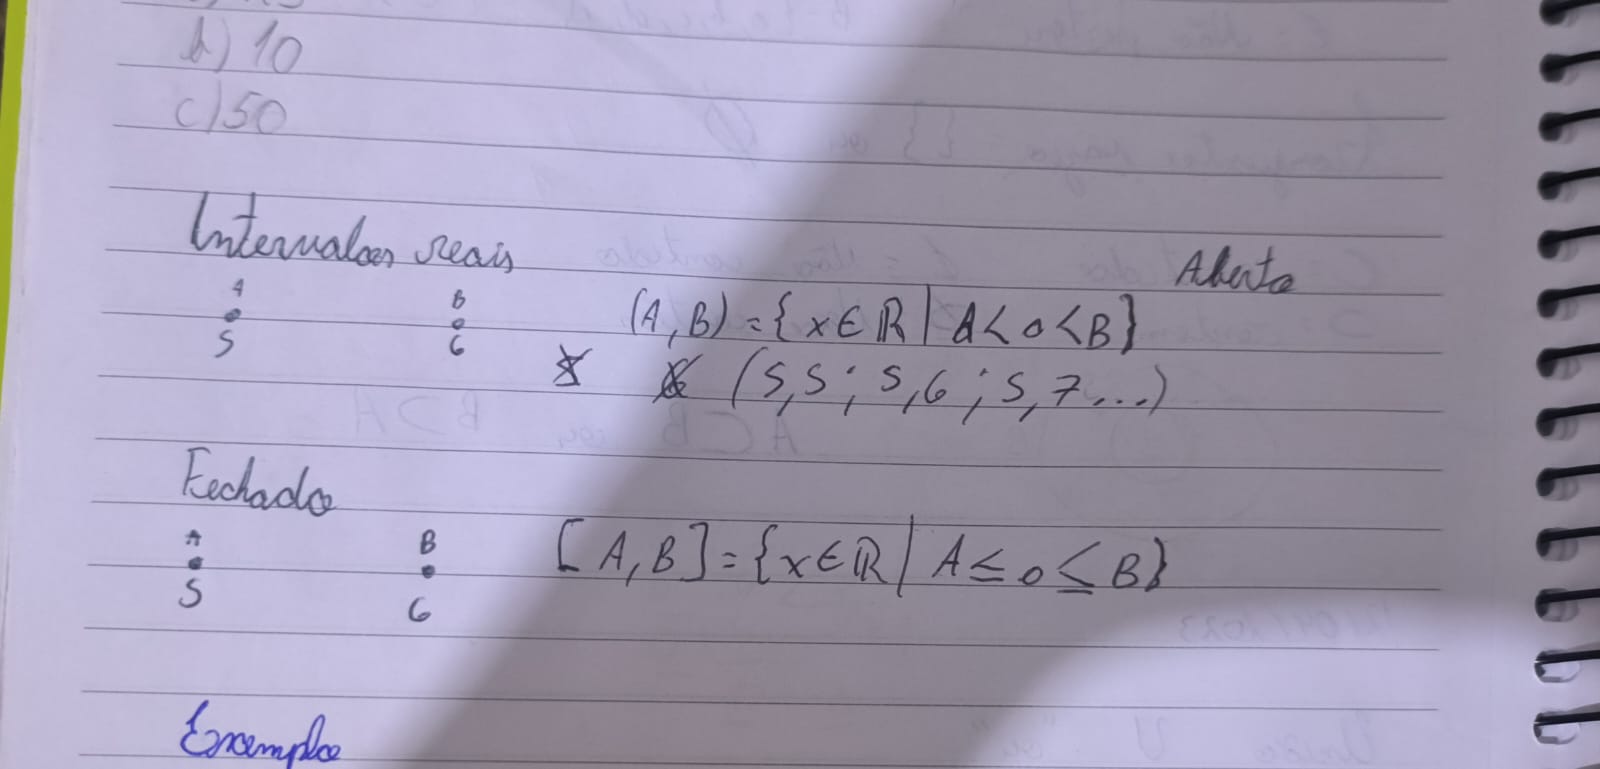 b) 10
c) 50
Intervalos reais
Aberto
A B (A, B) = { x ∈ ℝ | A < o < B }
5 6
(5,5 ; 5,6 ; 5,7 ...)
Fechado
A B [ A, B ] = { x ∈ ℝ | A ≤ o ≤ B }
5 6
Exemplo